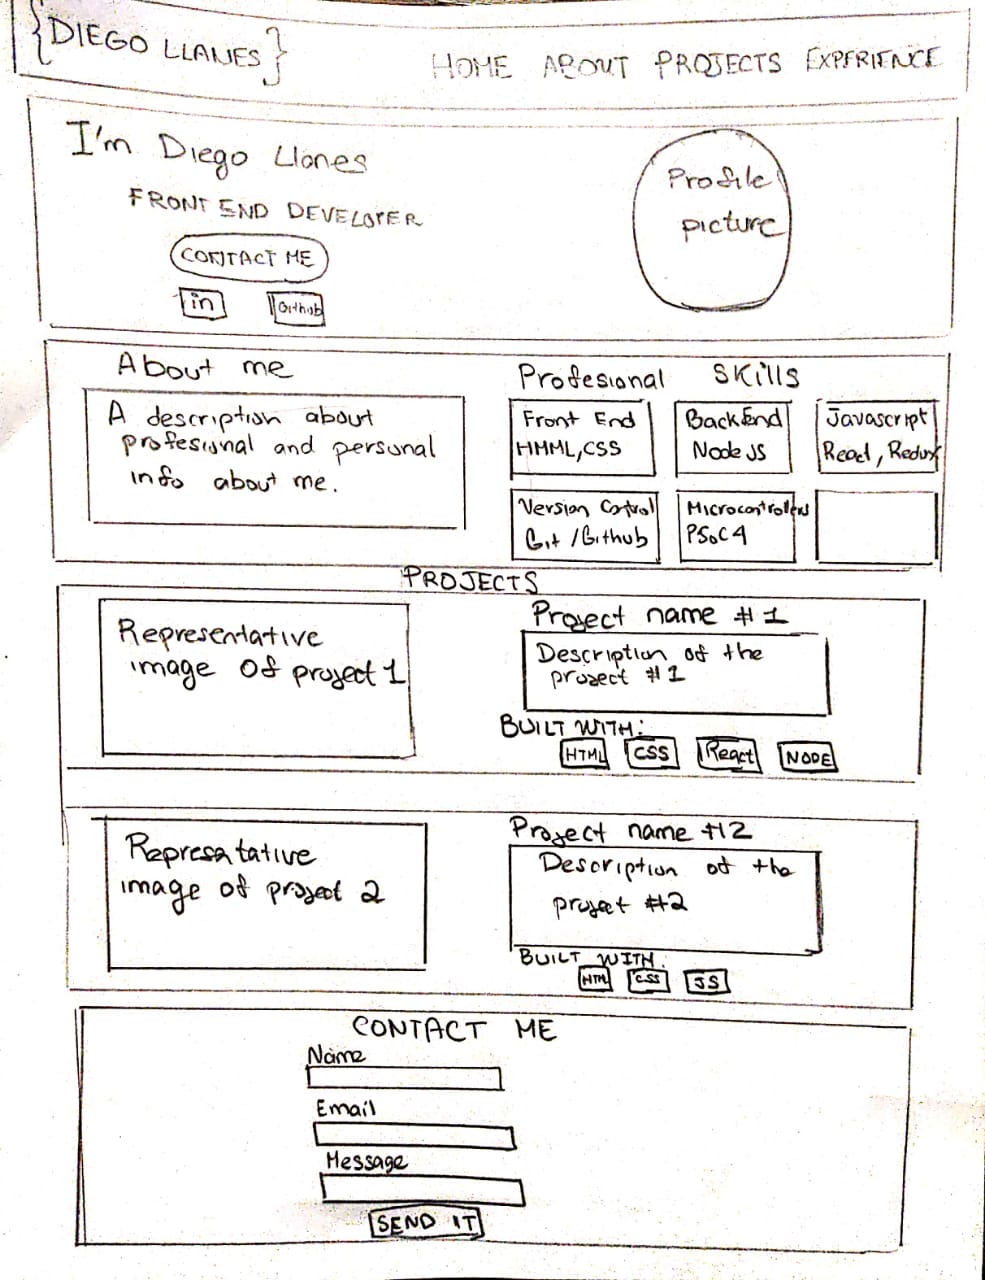 {DIEGO LLANES}
HOME ABOUT PROJECTS EXPERIENCE
I'm Diego Llanes
FRONT END DEVELOPER
CONTACT ME
in
Github
Profile
picture
About me
A description about
profesional and personal
info about me.
Profesional SKills
Front End
HMML,CSS
BackEnd
Node JS
Javascript
React, Redux
Version Control
Git /Github
Microcontrollers
PSoC4
PROJECTS
Representative
image of project 1
Project name #1
Description of the
project #1
BUILT WITH:
HTML
CSS
React
NODE
Represatative
image of project 2
Project name #2
Description of the
project #2
BUILT WITH:
HTML
CSS
JS
CONTACT ME
Name
Email
Message
SEND IT